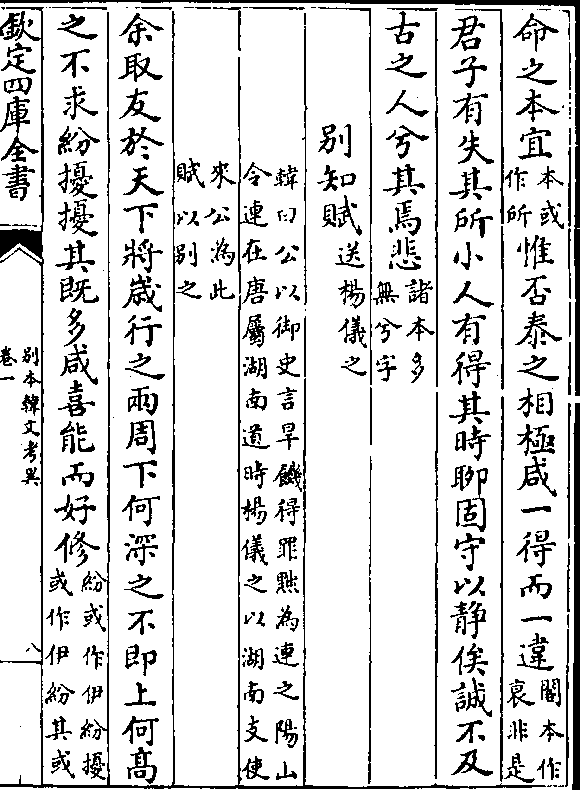 命之本宜本或作所惟否泰之相極咸一得而一違閣本作衷非是
君子有失其所小人有得其時聊固守以静俟誠不及
古之人兮其焉悲諸本多無兮字
别知賦送楊儀之
韓曰公以御史言旱饑得罪黜為連之陽山
令連在唐屬湖南道時楊儀之以湖南支使
來公為此
賦以别之
余取友於天下將嵗行之兩周下何深之不即上何髙
之不求紛擾擾其既多咸喜能而好修紛或作伊紛擾或作伊紛其或
欽定四庫全書
别本韓文考異
卷一
八